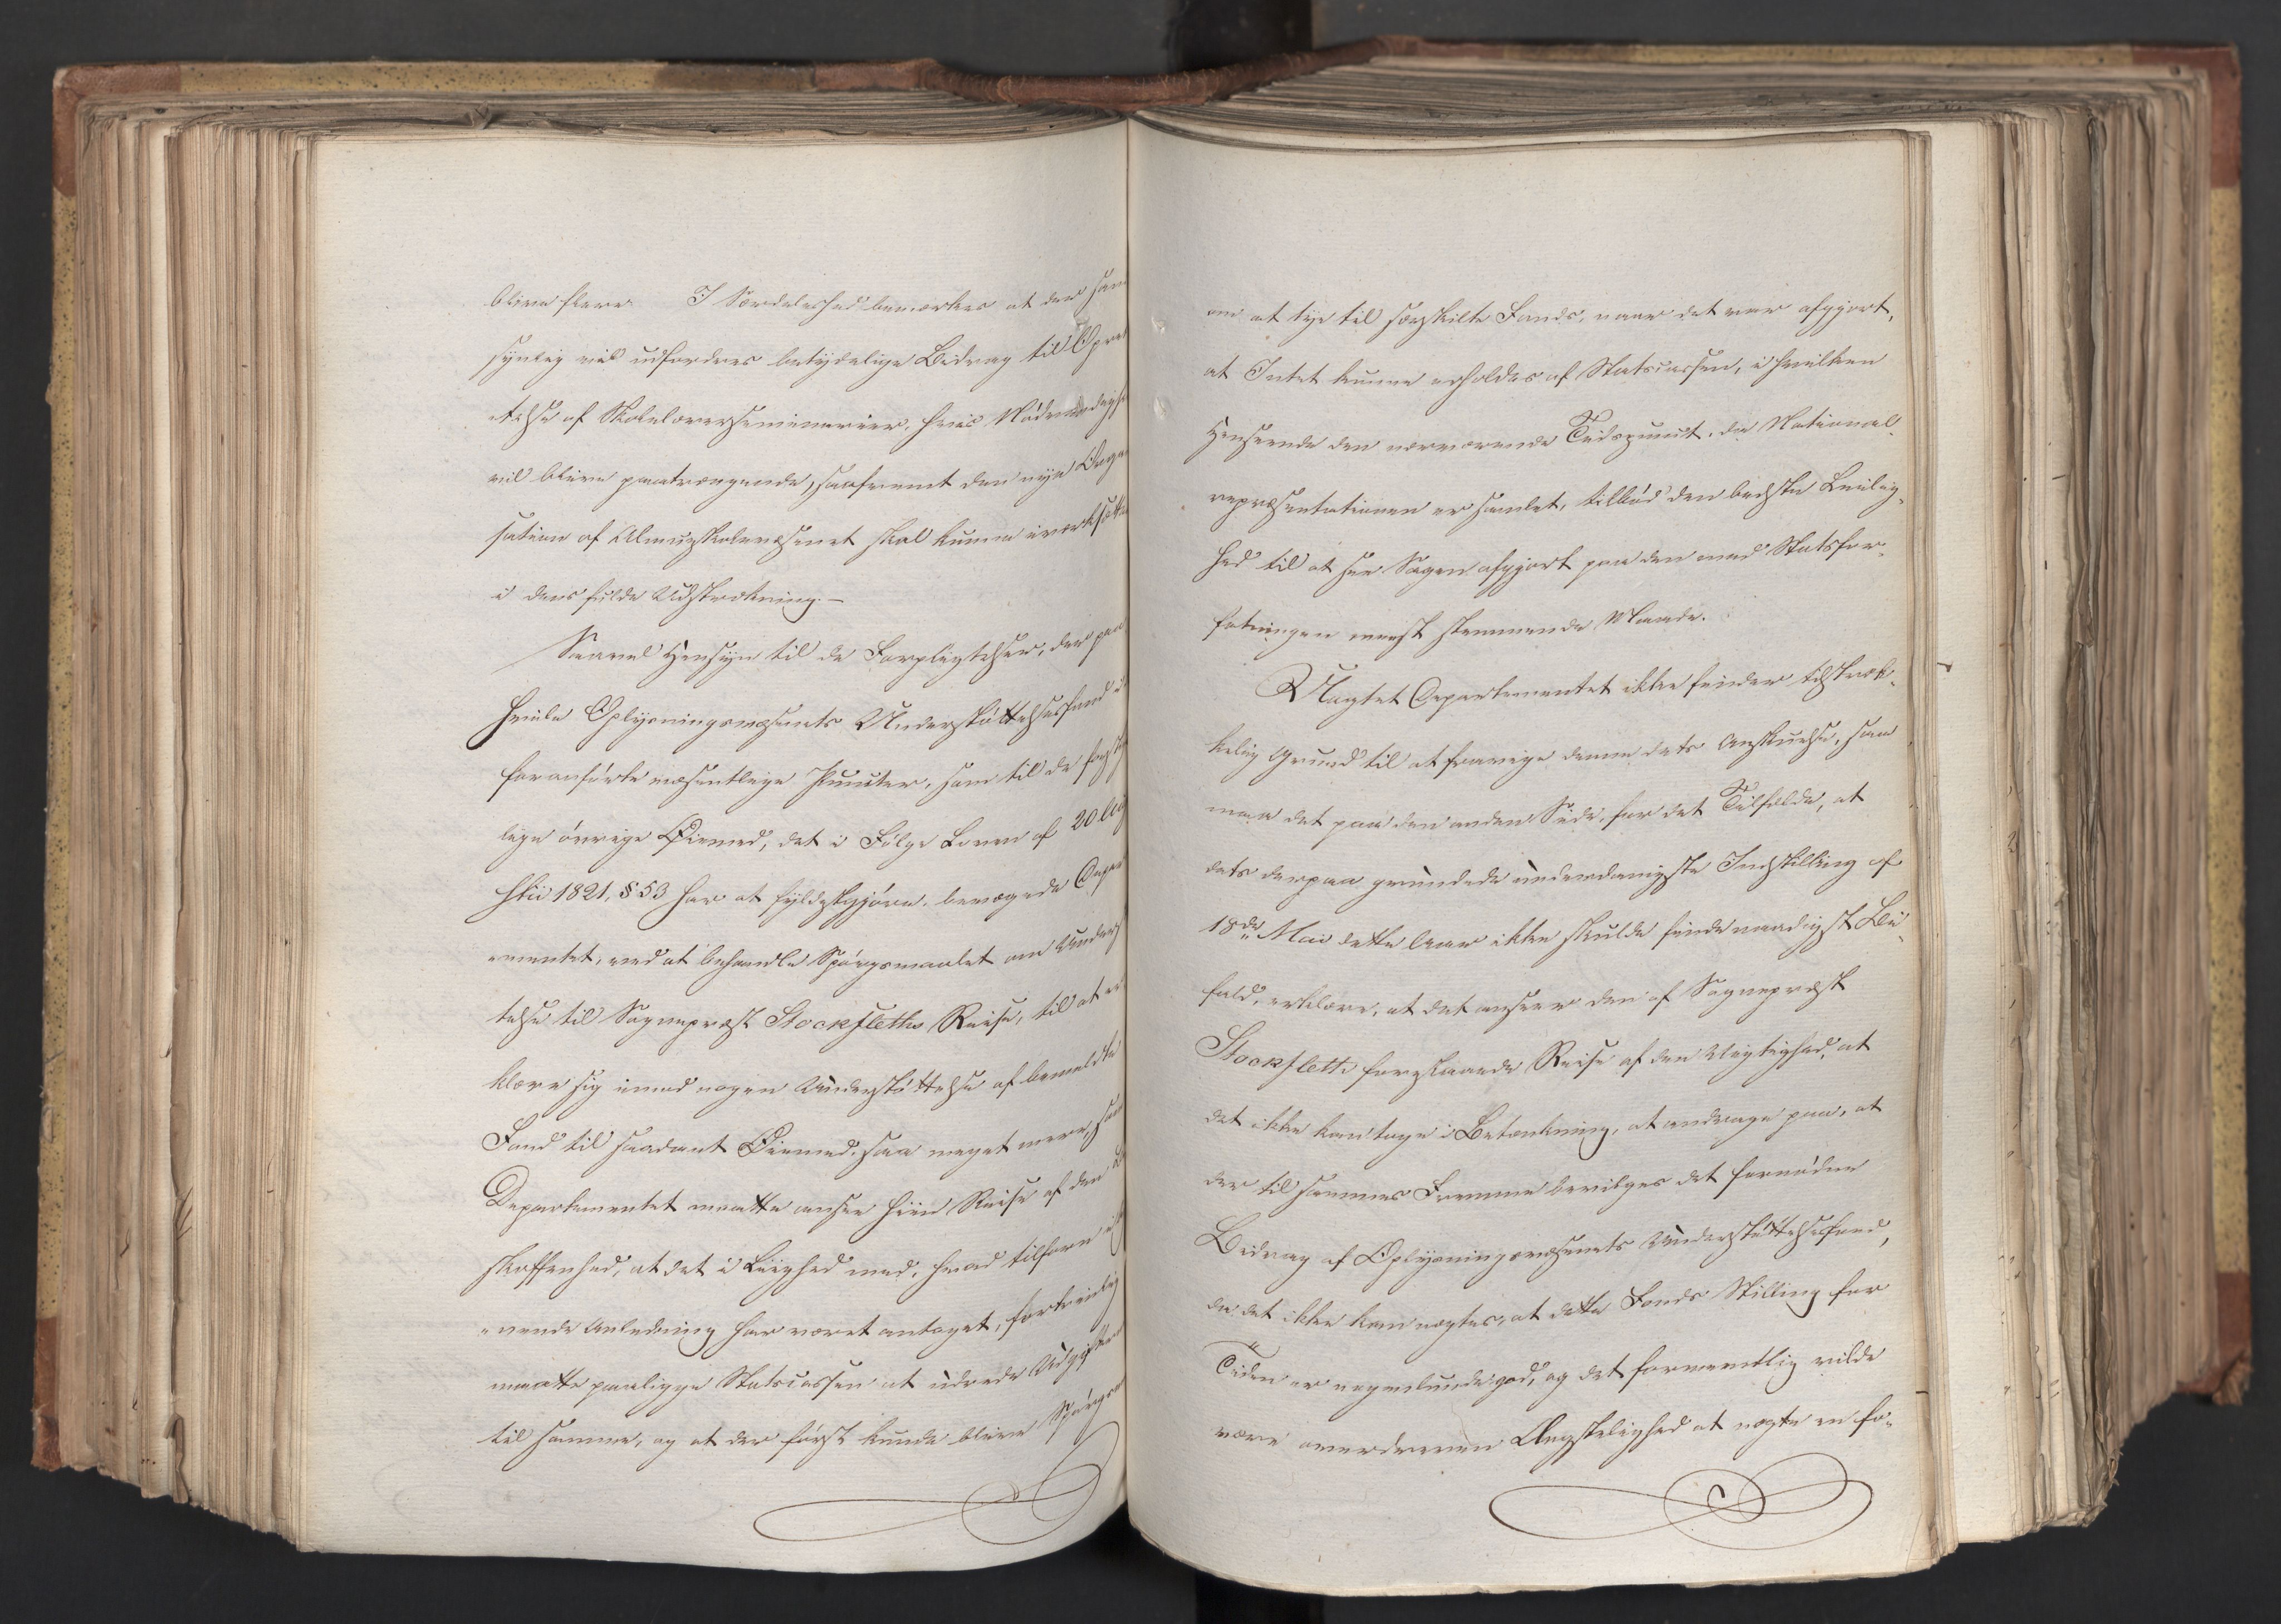 blive flere. I Særdeleshed bemærkes at der san
synlig vil udfordres betydelige Bidrag til Opret
telse af Skolelærerseminarier, hvis Nødvendighe
vil blive paatrængende, saafremt den nye Orga
sation af Almueskolevæsenet skal kunne iværksætte
i dens fulde Udstrækning.-
Saavel Hensyn til de Forpligtelser, der paa
hvile Oplysningsvæsenets Understøttelsesfond i
foranførte væsentlige Puncter, som til de forskj
lige øvrige Øiemed, det i Følge Loven af 20 Aug
hti 1821, § 53 har at fyldestgjøre, bevægede Depar
tementet, ved at behandle Spørgsmaalet om Underst
telse til Sognepræst Stockfleths Reise, til at er
klære sig imod nogen Understøttelse af bemeldte
Fond til saadant Øiemed, saa meget mere, som
Departementet maatte ansee hiin Reise af den Be
skaffenhed, at det i Liighed med, hvad tilforn i
nende Anledning har været antaget, fortrinlig
maatte paaligge Statscassen at udrede Udgiften
til samme, og at der først kunde blive Spørgsm
om at tye til særskilte Fonds, naar det var afgjort,
at Intet kunne erholdes af Statscassen, i hvilken
Henseende den nærværende Tidspunct, da National-
repræsentationen er samlet, tilbød den bedste Leilig-
hed til at see Sagen afgjort paa den med Statsfor-
fatningen meest stemmende Maade.
Uagtet Departementet ikke finder tilstræk-
kelig Grund til at fravige denne dets Anskuelse, saa
maa det paa den anden Side, for det Tilfælde, at
dets derpaa grundede underdanigste Indstilling af
18de Mai dette Aar ikke skulde finde naadigst Bi-
fald, erklære, at det anseer den af Sognepræst
Stockfleth foreslaaede Reise af den Vigtighed, at
det ikke kan tage i Betænkning, at andrage paa, at
der til sammes Fremme bevilges det fornødne
Bidrag af Oplysningsvæsenets Understøttelsesfond,
da det ikke kan nægtes, at dette Fonds Stilling for
Tiden er ingenlunde god, og det formeentlig vilde
være overdreven Ængstelighed at nægte en fo-